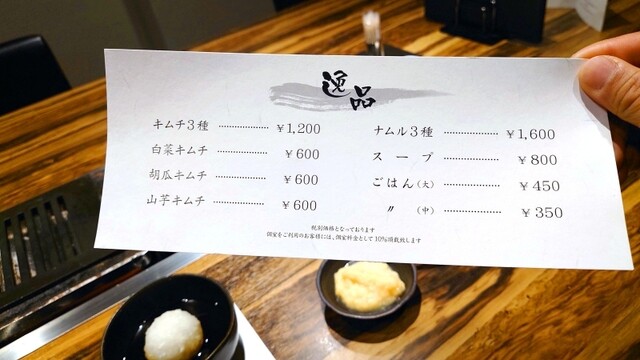 逸品
キムチ3種 ¥1,200
白菜キムチ ¥600
胡瓜キムチ ¥600
山芋キムチ ¥600
ナムル3種 ¥1,600
スープ ¥800
ごはん(大) ¥450
〃 (中) ¥350
税別価格となっております
個室をご利用のお客様には、個室料金として10%頂戴致します